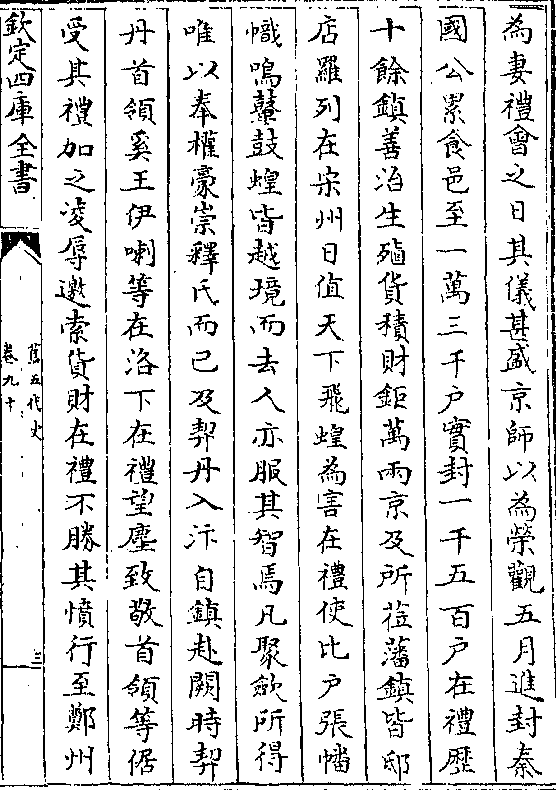 為妻禮會之日其儀甚盛京師以為榮觀五月進封秦
國公累食邑至一萬三千户實封一千五百户在禮歴
十餘鎮善治生殖貨積財鉅萬兩京及所莅藩鎮皆邸
店羅列在宋州日值天下飛蝗為害在禮使比户張幡
幟鳴鼙鼓蝗皆越境而去人亦服其智焉凡聚斂所得
唯以奉權豪崇釋氏而已及契丹入汴自鎮赴闕時契
丹首領奚王伊喇等在洛下在禮望塵致敬首領等倨
受其禮加之凌辱邀索貨財在禮不勝其憤行至鄭州
欽定四庫全書
舊五代史
卷九十
三